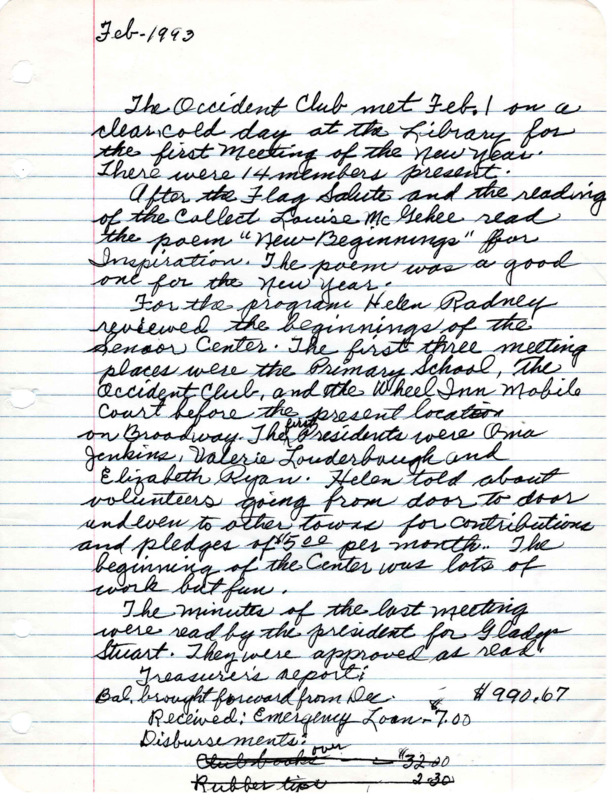 Feb-1993
The Occident Club met Feb. 1 on a
clear, cold day at the Library for
the first Meeting of the New Year.
There were 14 members present.
After the Flag Salute and the reading
of the Collect Louise McGehee read
the poem "New Beginnings" for
Inspiration. The poem was a good
one for the New Year.
For the program Helen Radney
reviewed the beginnings of the
Senoor Center. The first three meeting
places were the Primary School, the
Occident Club, and the Wheel Inn Mobile
Court before the present location
on Broadway. The first Presidents were Oma
Jenkins, Valerie Louderbough and
Elizabeth Ryan. Helen told about
volunteers going from door to door
and even to other towns for contributions
and pledges of $5.00 per month. The
beginning of the Center was lots of
work but fun.
The minutes of the last meeting
were read by the president for Gladys
Stuart. They were approved as read.
Treasurer's report:
Bal. brought forward from Dec. $990.67
Received: Emergency Loan - 7.00
Disbursements: over
Club books - $32.00
Rubber tips 2.30